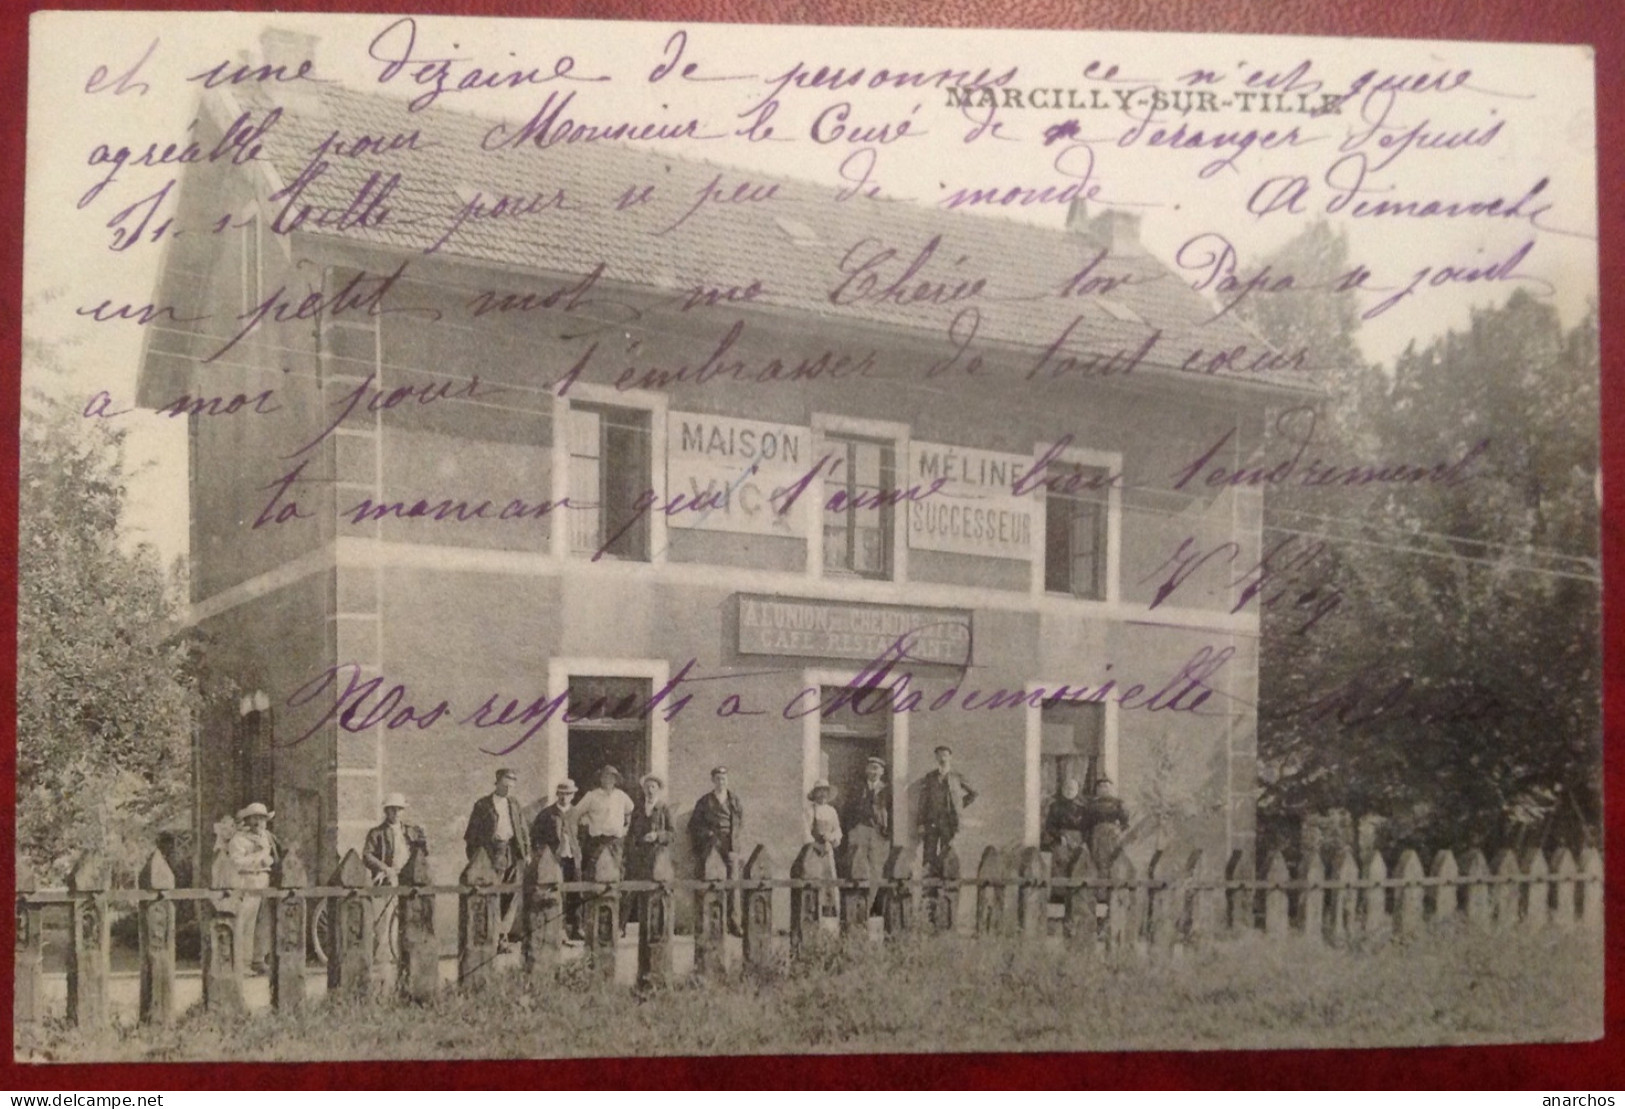 et une dézaine de personnes ce n'est guère
MARCILLY-SUR-TILLE
agréable pour Monsieur le Curé de déranger depuis
Is-s-Tille pour si peu de monde. A dimanche
un petit mot ma Cherie ton Papa se joint
a moi pour t'embrasser de tout cœur
ta maman qui t'aime bien tendrement
V. Vicq
MAISON
VICQ
MÉLINE
SUCCESSEUR
A L'UNION DES CHEMINS DE FER
CAFÉ RESTAURANT
Nos respects a Mademoiselle
anarchos